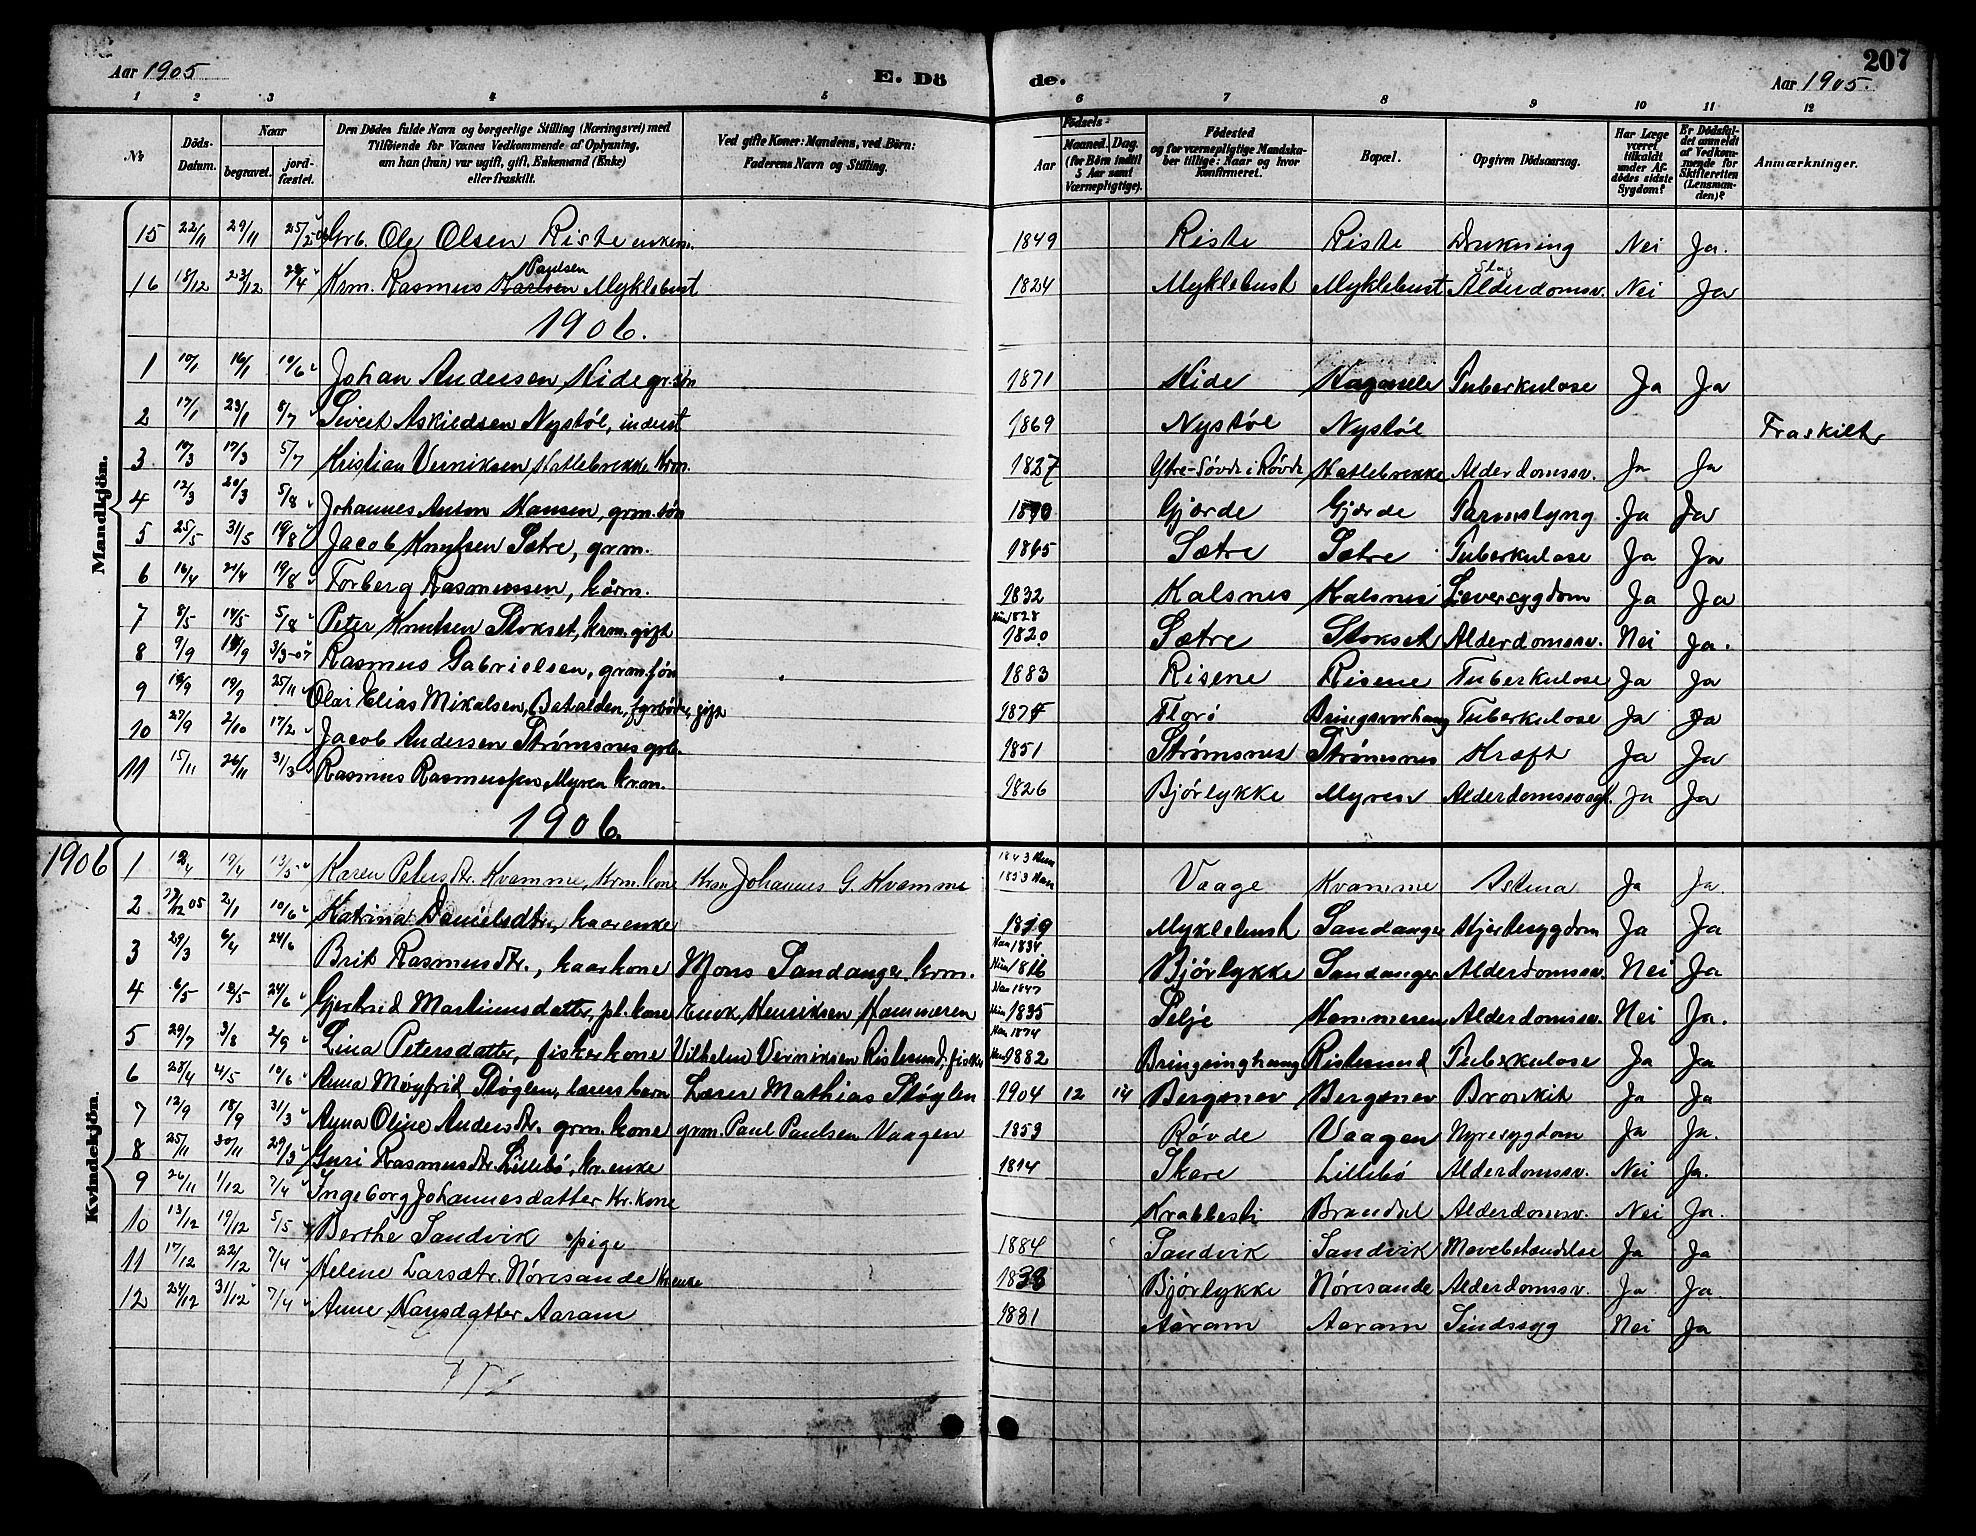 207
Aar 1905 E. Dö de. Aar 1905.
1 2 3 4 5 6 7 8 9 10 11 12
No Döds-Datum. Naar begravet. jordfæstet. Den Dödes fulde Navn og borgerlige Stilling (Næringsvei) med Tilföiende for Voxnes Vedkommende af Oplysning, om han (hun) var ugift, gift, Enkemand (Enke) eller fraskilt. Ved gifte Koner: Mandens, ved Börn: Faderens Navn og Stilling. Födsels- Aar Maaned. Dag. (for Börn indtil 5 Aar samt Værnepligtige). Födested og for værnepligtige Mandskaber tillige: Naar og hvor konfirmeret. Bopæl. Opgiven Dödsaarsag. Har Læge været tilkaldt under Afdödes sidste Sygdom? Er Dödsfaldet anmeldt af Vedkommende for Skifteretten (Lensmanden)? Anmærkninger.
Mandkjön.
15 22/11 29/11 25/2 Grb. Ole Olsen Riste enkem. 1849 Riste Riste Drukning Nei Ja.
16 18/12 23/12 29/4 Krm. Rasmus Karlsen Paulsen Myklebust 1824 Myklebust Myklebust Alderdomssv. Nei Ja
1906.
1 10/1 16/1 10/6 Johan Andersen Hide grsøn 1871 Hide Tuberkulose Ja Ja
2 17/1 23/1 8/7 Sivert Askildsen Nystøl, inderst 1869 Nystøl Nystøl Fraskilt
3 10/3 17/3 5/7 Kristian Verniksen Hatlebrekke Krm. 1827 Ytre-Søvde i Røvde Hatlebrekke Alderdomssv. Ja Ja
4 12/3 20/3 5/8 Johannes Anton Hansen, grm. søn 1890 Gjærde Gjærde Tarmslyng Ja Ja
5 25/5 31/5 19/8 Jacob Knutsen Sætre, grm. 1865 Sætre Sætre Tuberkulose Ja Ja
6 16/4 21/4 19/8 Torberg Rasmussen, kårm. 1832 Kalsnes Kalsnes Leversygdom Ja Ja
7 8/5 14/5 5/8 Peter Knutsen Stokset, krm. gift 1828 1820. Sætre Stokset Alderdomssv. Nei Ja.
8 9/9 14/9 3/3-07 Rasmus Gabrielsen, grm. søn 1883 Risene Risene Tuberkulose Ja Ja
9 12/9 19/9 25/11 Olai Elias Mikalsen, Batalden, fyrbøder, gift 1874 Florø Bringsvorhaug Tuberkulose Ja Ja
10 27/9 2/10 17/2 Jacob Andersen Strømsnes grb. 1851 Strømsnes Strømsnes Kræft Ja Ja
11 15/11 26/11 31/3 Rasmus Rasmussen, Myren krm. 1826 Bjørlykke Myren Alderdomssvagh. Ja Ja
1906.
1906
Kvindekjön.
1 12/4 19/4 13/5 Karen Petersdtr. Kvamme, krm. kone Krm Johannes G. Kvamme 1843 1853 Vaage Kvamme Astma Ja Ja.
2 27/12 05 2/1 10/6 Katrina Danielsdtr, kaarenke 1819 Myklebust Sandanger Hjertesygdom Ja Ja
3 29/3 6/4 24/6 Brit Rasmusdtr., kaarkone Mons Sandanger krm. 1834 1816 Bjørlykke Sandanger Alderdomssv. Nei Ja
4 6/5 12/5 24/6 Gjertrud Martinusdatter, pl. kone Henriksen Hammeren 1847 1835 Selje Hammeren Alderdomssv. Nei Ja.
5 29/7 3/8 2/9 Lina Petersdatter, fiskerkone Vilhelm Verniksen Ristesund, fisker 1874 1882 Bringsinghaug Ristesund Tuberkulose Ja Ja
6 28/4 4/5 10/6 Anna Møyfrid Støylen, lærersbarn Lærer Mathias Støylen 1904 12 14 Bergsnev Bergsnev Bronkit Ja Ja
7 12/9 18/9 31/3 Anna Oline Andersdtr. grm. kone grm. Paul Paulsen Vaagen 1853 Røvde Vaagen Nyresygdom Ja Ja.
8 25/11 30/11 29/3 Guri Rasmusdtr. Lillebø, kr. enke 1814 Skare Lillebø Alderdomssv. Nei Ja.
9 26/11 1/12 7/4 Ingeborg Johannesdatter Kr. kone Krabbesti Brandal Alderdomsv. Nei Ja.
10 13/12 19/12 5/5 Berthe Sandvik pige 1884 Sandvik Sandvik Mavebetændelse Ja Ja
11 17/12 22/12 7/4 Helene Larsdtr. Nøresande Kr. enke 1838 Bjørlykke Nøresande Alderdomssv. Ja Ja.
12 24/12 31/12 7/4 Anne Hansdatter Aaram 1831 Aaram Aaram Sindssyg Nei Ja